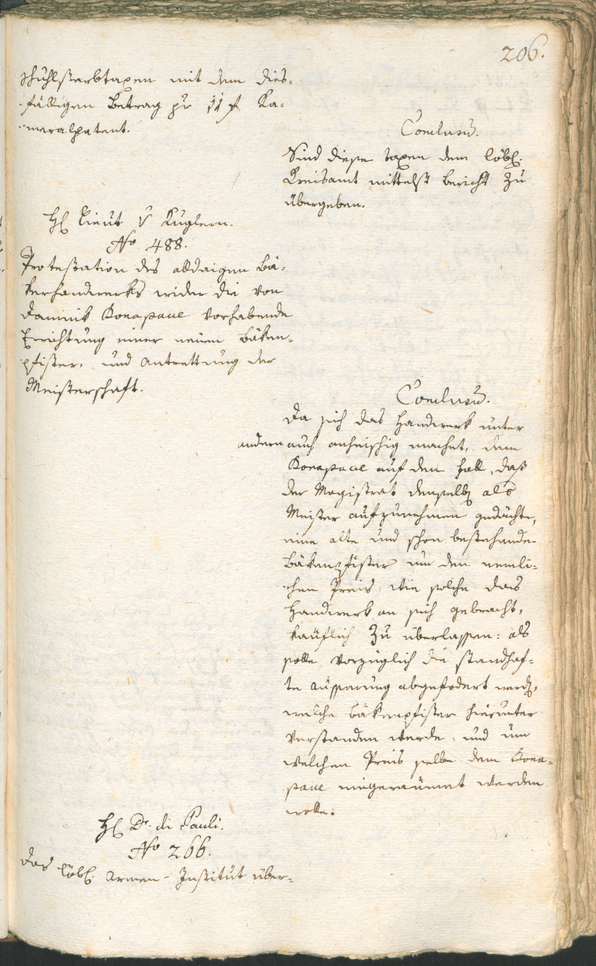 206.
schuhlsterbtaxen mit dem dies-
fälligen Betrag pr 11 f Ka-
meralpatent.
Conclusum.
Sind diese taxen dem löbl.
Kreisamt mittelst bericht zu
übergeben.
H Lieut v Kuglern.
No 488.
Protestation des alldaigen Bä-
kerhandwerks wider die von
Dominik Bonapace vorhabende
Errichtung einer neuen Bäken-
pfister, und Antrettung der
Meisterschaft.
Conclusum.
Da sich das Handwerk unter
andern auch anheischig machet, dem
Bonapace auf den fall, daß
der Magistrat denselb als
Meister aufzunehmen gedächte,
eine alte und schon bestehende
Bäkenpfister um den nemli-
chen Preis, wie solche das
Handwerk an sich gebracht,
käuflich zu überlassen: als
solle vorzüglich die standhaf-
te äusserung abgefodert werd,
welche bäkenpfister hierunter
verstanden werde, und um
welchen Preis selbe dem Bona-
pace eingeräumt werden
wolle.
H Dr. di Pauli.
No 266.
Das löbl Armen-Institut über-